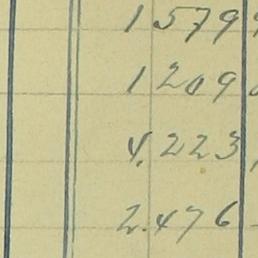 15799
1209
4.223
2.476